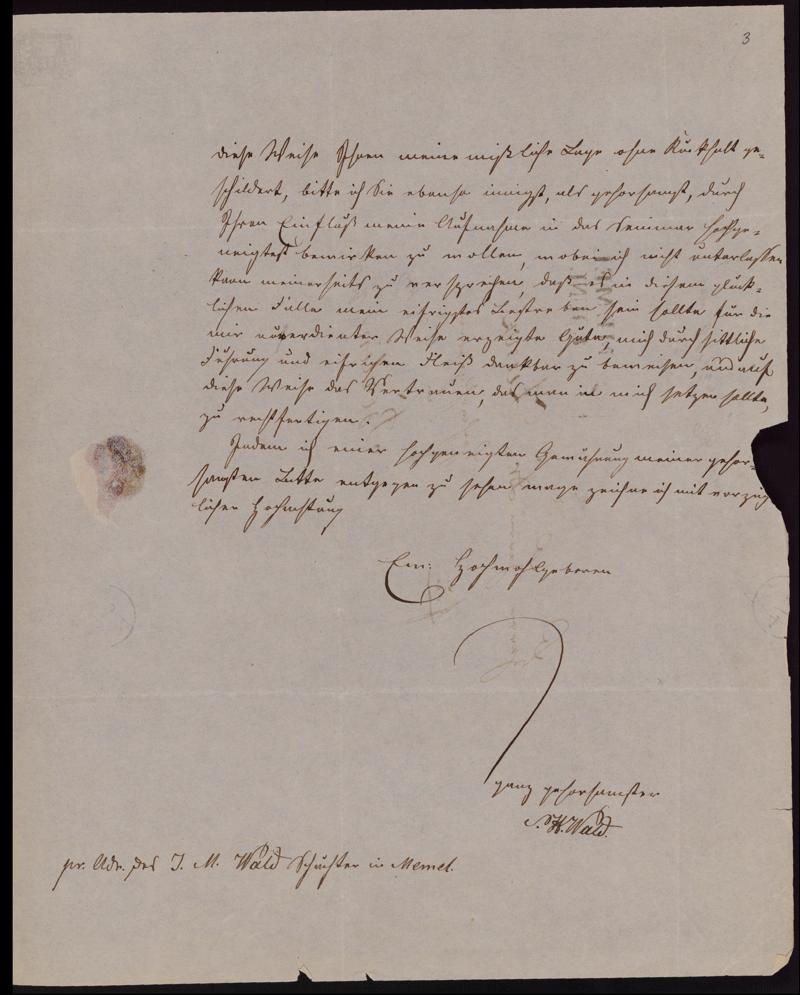 3
diese Weise Ihnen meine mißliche Lage ohne Rückhalt ge-
schildert, bitte ich Sie ebenso innigst, als gehorsamst, durch
Ihren Einfluß meine Aufnahme in das Seminar hochge-
neigtest bewirken zu wollen, wobei ich nicht unterlassen
kann meinerseits zu versprechen, daß es in diesem glück-
lichen Falle mein eifrigstes Bestreben sein sollte für die
mir unverdienter Weise erzeigte Güte, mich durch sittliche
Führung und Fleiß dankbar zu beweisen, und auf
diese Weise das Vertrauen, das man in mich setzen sollte,
zu rechtfertigen.
Indem ich einer hochgeneigten Gewährung meiner gehor-
samsten Bitte entgegen zu sehen wage zeichne ich mit vorzüg-
licher Hochachtung
Ew: Hochwohlgeboren
ganz gehorsamster
S. H. Wald.
pr. Adr. des J. M. Wald Schuster in Memel.